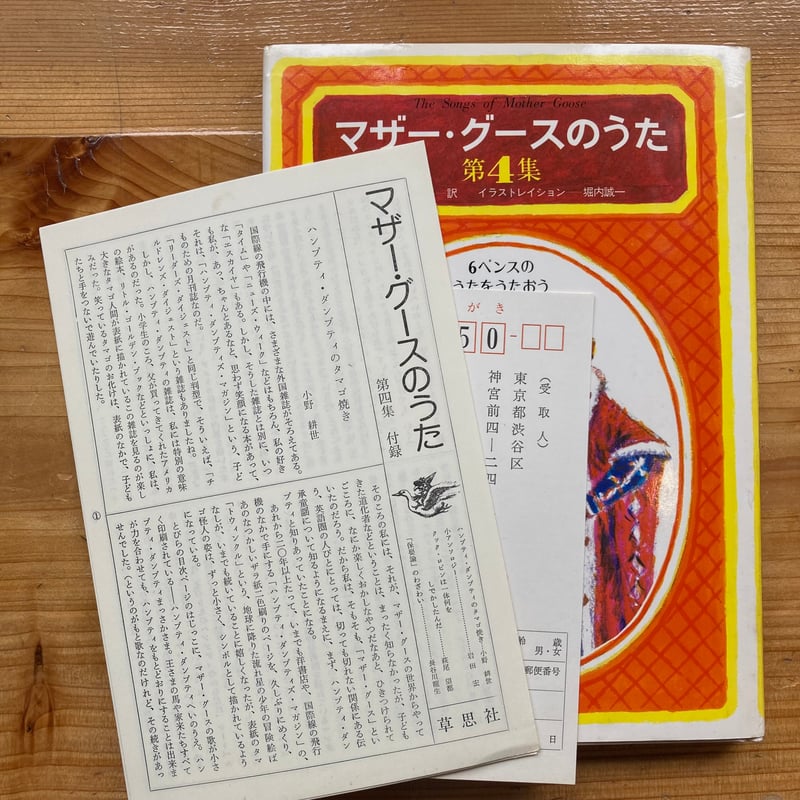 The Songs of Mother Goose
マザー・グースのうた
第4集
訳 イラストレイション 堀内誠一
6ペンスの
うたをうたおう
がき
50-
（受取人）
東京都渋谷区
神宮前四―二四
歳
男・女
郵便番号
日
マザー・グースのうた
第四集 付録
ハンプティ・ダンプティのタマゴ焼き
小野 耕世
国際線の飛行機の中には、さまざまな外国雑誌がそろえてある。
「タイム」や「ニューズ・ウィーク」などはもちろん、私の好き
な「エスカイヤ」もある。しかし、そうした雑誌とは別に、いつ
も私が、あっ、ちゃんとあるなと、思わず笑顔になる本があって、
それは、「ハンプティ・ダンプティズ・マガジン」という、子ど
ものための月刊誌なのだ。
「リーダーズ・ダイジェスト」と同じ判型で、そういえば、「チ
ルドレンズ・ダイジェスト」という雑誌もありましたね。
しかし、ハンプティ・ダンプティの雑誌は、私には特別の意味
があるのだった。小学生のころ、父が買ってきてくれたアメリカ
の絵本、リトル・ゴールデン・ブックなどといっしょに、私は、
大きなタマゴ人間が表紙に描かれているこの雑誌を見るのが楽し
みだった。笑っているタマゴのお化けは、表紙のなかで、子ども
たちと手をつないで遊んでいたりした。
ハンプティ・ダンプティのタマゴ焼き 小野 耕世
小アンソロジー 岩田 宏
クック・ロビンは一体何を
しでかしたんだ 萩尾 望都
「保姆論」のわざわい 長谷川龍生
草思社
そのころの私には、それが、マザー・グースの世界からやって
きた道化者などということは、まったく知らなかったが、子ども
ごころに、なにか楽しくおかしなやつだなあと、ひきつけられて
いたのだろう。だから私は、そもそも、「マザー・グース」とい
う、英語圏の人びとにとっては、切っても切れない関係にある伝
承童謡について知るようになるまえに、まず、ハンプティ・ダン
プティと知りあっていたことになる。
あれから二〇年以上たって、いまでも洋書店や、国際線の飛行
機のなかで手にする「ハンプティ・ダンプティズ・マガジン」の、
あのなつかしいザラ紙二色刷りのページを、久しぶりにめくり、
「トウィンクル」という、地球に降りた流れ星の少年の冒険絵ば
なしが、いまでも続いていることに嬉しくなったが、表紙のタマ
ゴ怪人の姿は、ずっと小さく、シンボルとして描かれているよう
になっている。
とびらの目次ページのはじっこに、マザー・グースの歌が小さ
く印刷されている――ハンプティ・ダンプティへいのうえ。ハン
プティ・ダンプティまっさかさま。王さまの馬や家来たちすべて
が力を合わせても、ハンプティをもとどおりにすることは出来ま
せんでした。（というのがもと歌なのだけれど、その続きがあっ
①